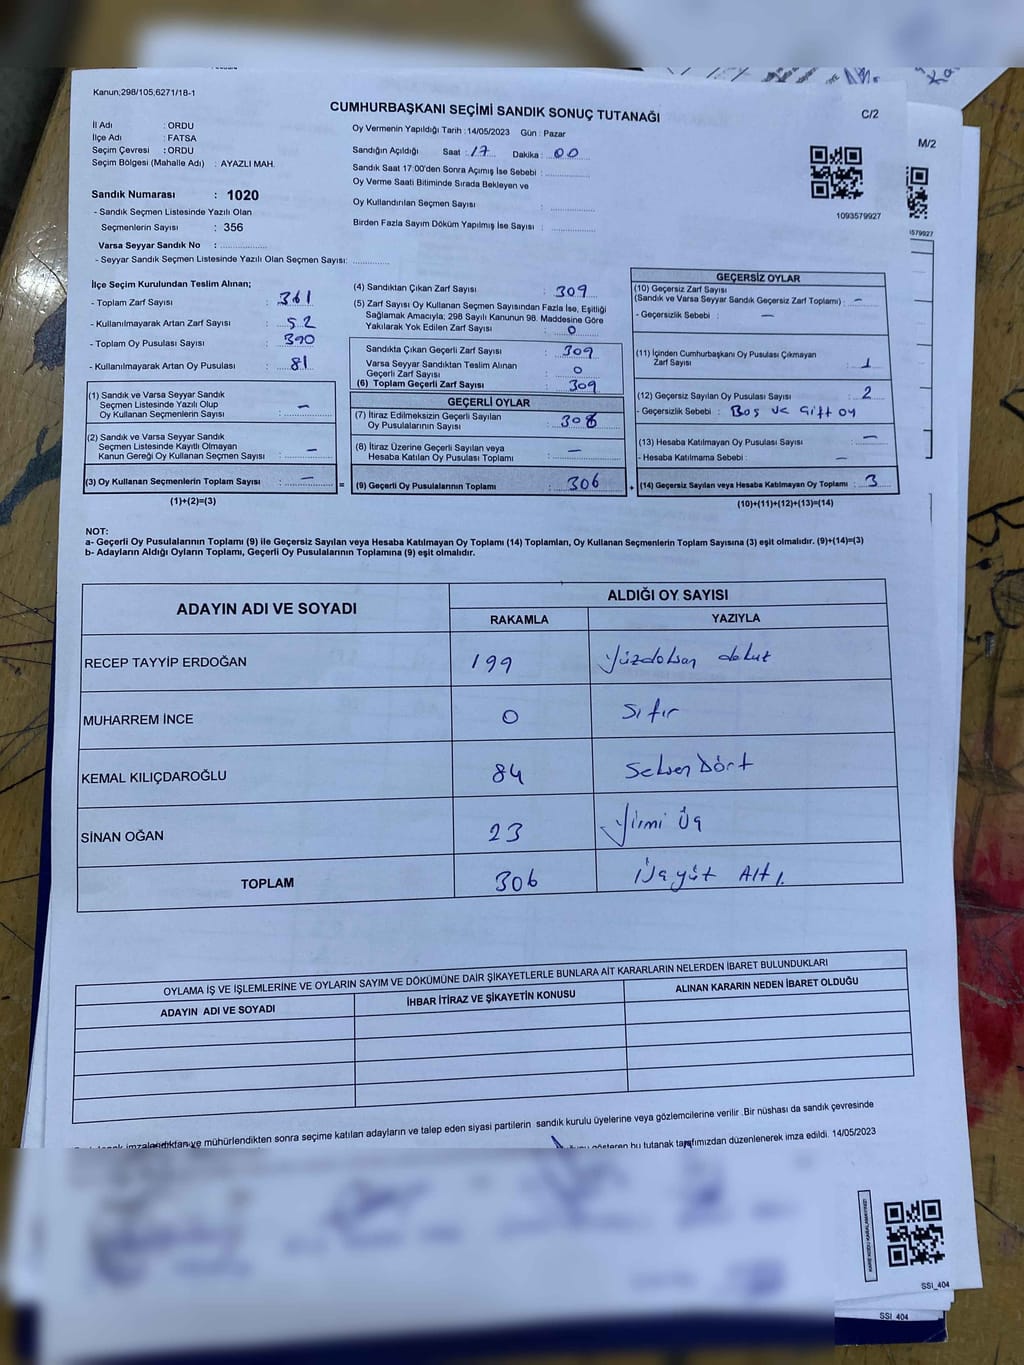 Kanun;298/105,6271/18-1
CUMHURBAŞKANI SEÇİMİ SANDIK SONUÇ TUTANAĞI
C/2
M/2
İl Adı : ORDU
İlçe Adı : FATSA
Seçim Çevresi : ORDU
Seçim Bölgesi (Mahalle Adı) : AYAZLI MAH.
Sandık Numarası : 1020
- Sandık Seçmen Listesinde Yazılı Olan
Seçmenlerin Sayısı : 356
Varsa Seyyar Sandık No :
- Seyyar Sandık Seçmen Listesinde Yazılı Olan Seçmen Sayısı:
Oy Vermenin Yapıldığı Tarih : 14/05/2023 Gün : Pazar
Sandığın Açıldığı Saat : 17 Dakika : 00
Sandık Saat 17:00'den Sonra Açımış İse Sebebi :
Oy Verme Saati Bitiminde Sırada Bekleyen ve
Oy Kullandırılan Seçmen Sayısı :
Birden Fazla Sayım Döküm Yapılmış İse Sayısı :
1093579927
579927
İlçe Seçim Kurulundan Teslim Alınan;
- Toplam Zarf Sayısı : 361
- Kullanılmayarak Artan Zarf Sayısı : 52
- Toplam Oy Pusulası Sayısı : 390
- Kullanılmayarak Artan Oy Pusulası : 81
(1) Sandık ve Varsa Seyyar Sandık
Seçmen Listesinde Yazılı Olup
Oy Kullanan Seçmenlerin Sayısı : -
(2) Sandık ve Varsa Seyyar Sandık
Seçmen Listesinde Kayıtlı Olmayan
Kanun Gereği Oy Kullanan Seçmen Sayısı : -
(3) Oy Kullanan Seçmenlerin Toplam Sayısı : -
(1)+(2)=(3)
=
(4) Sandıktan Çıkan Zarf Sayısı : 309
(5) Zarf Sayısı Oy Kullanan Seçmen Sayısından Fazla İse, Eşitliği
Sağlamak Amacıyla; 298 Sayılı Kanunun 98. Maddesine Göre
Yakılarak Yok Edilen Zarf Sayısı : 0
Sandıkta Çıkan Geçerli Zarf Sayısı : 309
Varsa Seyyar Sandıktan Teslim Alınan
Geçerli Zarf Sayısı : 0
(6) Toplam Geçerli Zarf Sayısı : 309
GEÇERLİ OYLAR
(7) İtiraz Edilmeksizin Geçerli Sayılan
Oy Pusulalarının Sayısı : 306
(8) İtiraz Üzerine Geçerli Sayılan veya
Hesaba Katılan Oy Pusulası Toplamı : -
(9) Geçerli Oy Pusulalarının Toplamı : 306
+
GEÇERSİZ OYLAR
(10) Geçersiz Zarf Sayısı
(Sandık ve Varsa Seyyar Sandık Geçersiz Zarf Toplamı) : -
- Geçersizlik Sebebi : -
(11) İçinden Cumhurbaşkanı Oy Pusulası Çıkmayan
Zarf Sayısı : 1
(12) Geçersiz Sayılan Oy Pusulası Sayısı : 2
- Geçersizlik Sebebi : Boş ve Çift oy
(13) Hesaba Katılmayan Oy Pusulası Sayısı : -
- Hesaba Katılmama Sebebi : -
(14) Geçersiz Sayılan veya Hesaba Katılmayan Oy Toplamı : 3
(10)+(11)+(12)+(13)=(14)
NOT:
a- Geçerli Oy Pusulalarının Toplamı (9) ile Geçersiz Sayılan veya Hesaba Katılmayan Oy Toplamı (14) Toplamları, Oy Kullanan Seçmenlerin Toplam Sayısına (3) eşit olmalıdır. (9)+(14)=(3)
b- Adayların Aldığı Oyların Toplamı, Geçerli Oy Pusulalarının Toplamına (9) eşit olmalıdır.
ADAYIN ADI VE SOYADI
ALDIĞI OY SAYISI
RAKAMLA YAZIYLA
RECEP TAYYİP ERDOĞAN 199 Yüzdoksan dokuz
MUHARREM İNCE 0 Sıfır
KEMAL KILIÇDAROĞLU 84 Seksen Dört
SİNAN OĞAN 23 Yirmi Üç
TOPLAM 306 Üçyüz Altı
OYLAMA İŞ VE İŞLEMLERİNE VE OYLARIN SAYIM VE DÖKÜMÜNE DAİR ŞİKAYETLERLE BUNLARA AİT KARARLARIN NELERDEN İBARET BULUNDUKLARI
ADAYIN ADI VE SOYADI İHBAR İTİRAZ VE ŞİKAYETİN KONUSU ALINAN KARARIN NEDEN İBARET OLDUĞU
imzalandıktan ve mühürlendikten sonra seçime katılan adayların ve talep eden siyasi partilerin sandık kurulu üyelerine veya gözlemcilerine verilir .Bir nüshası da sandık çevresinde
gösteren bu tutanak tarafımızdan düzenlenerek imza edildi. 14/05/2023
SSI_404
SSI_404